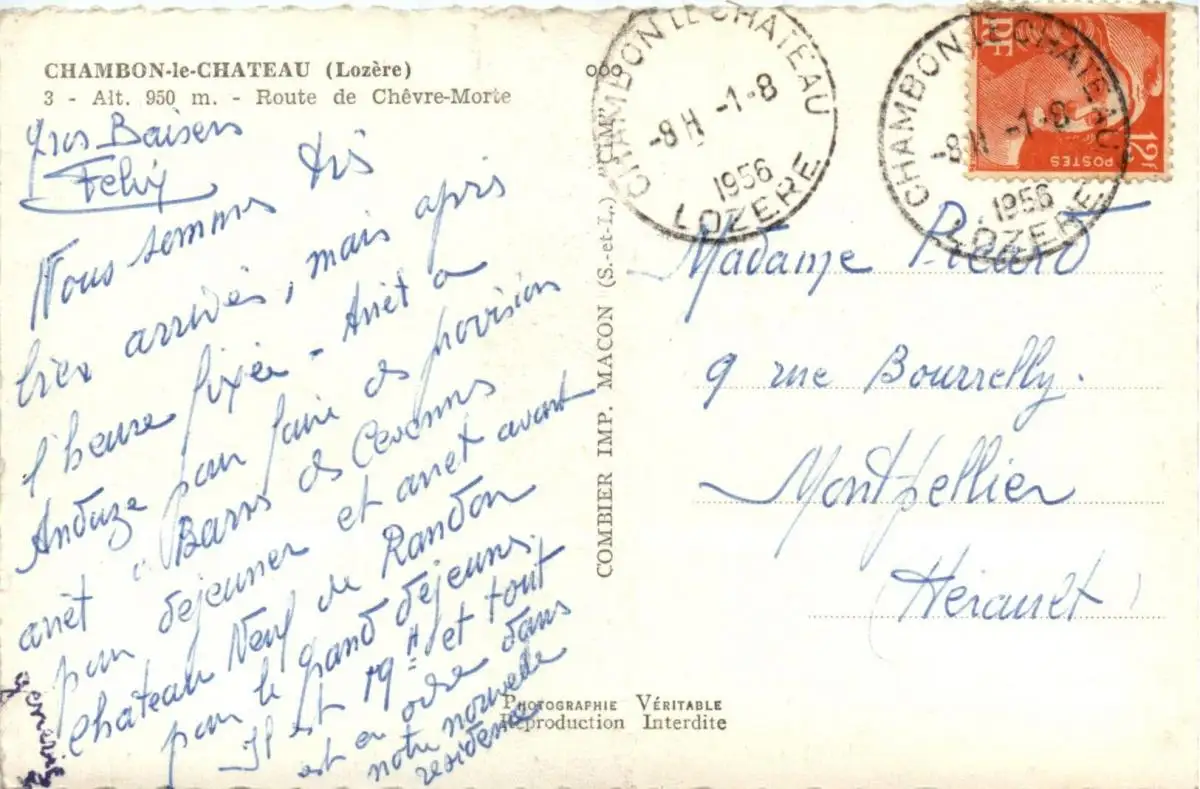 CHAMBON-le-CHATEAU (Lozère)
3 - Alt. 950 m. - Route de Chêvre-Morte
gros Baisers
Nous sommes très
bien arrivés, mais après
l'heure fixée - Arrêt a
Anduze pour faire des provision
arrêt a Barres des Cevennes
pour dejeuner et arret avant
chateau Neuf de Randon
pour le grand dejeuner.
Il est 19H et tout
est en ordre dans
notre nouvelle
residence
COMBIER IMP. MACON (S.-et-L.) "CIM"
CHAMBON LE CHATEAU
-8H -1-8
1956
LOZERE
CHAMBON LE CHATEAU
-8H -1-8
1956
LOZERE
RF
POSTES
12F
Madame Picard
9 rue Bourrelly.
Montpellier
Hérault
PHOTOGRAPHIE VÉRITABLE
Reproduction Interdite